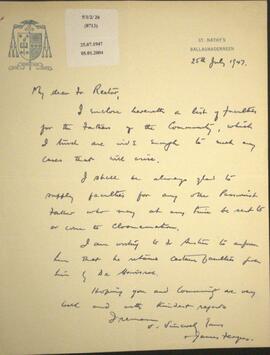 5/1/2/26
(8713)
25.07.1947
05.01.2004
ST. NATHY'S
BALLAGHADERREEN
25th July, 1947.
My dear Fr Rector,
I enclose herewith a list of faculties
for the Fathers of the Community, which
I trust are wide enough to meet any
cases that will arise.
I shall be always glad to
supply faculties for any other Passionist
Father who may at any time be sent to
or come to Cloonamahon.
I am writing to to inform
him that he retains certain faculties from
him
Hoping you and Community are very
well and with kindest regards
I remain
Sincerely Yours
+ James Fergus.